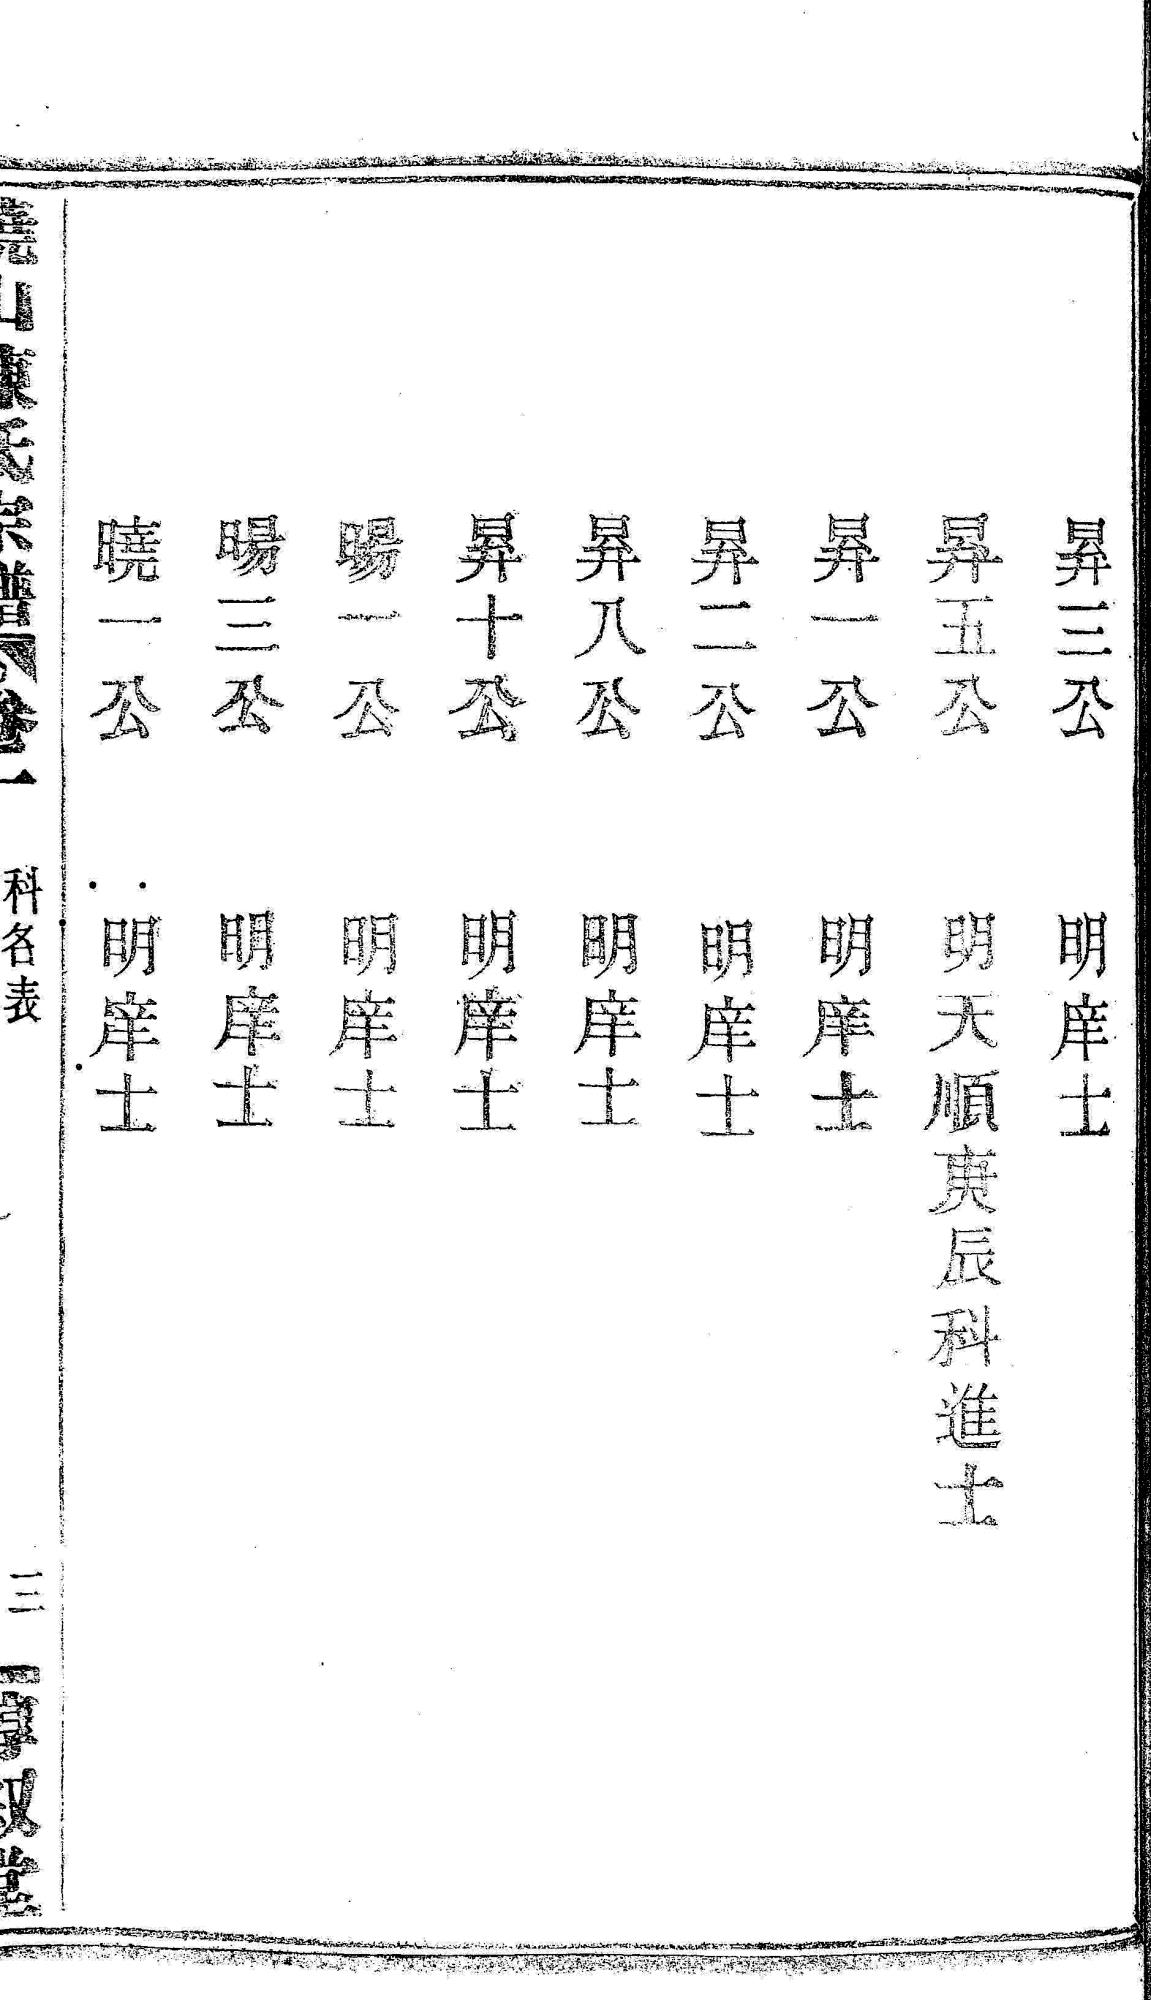 昇三公 明庠士
昇五公 明天順庚辰科進士
昇一公 明庠士
昇二公 明庠士
昇八公 明庠士
昇十公 明庠士
暘一公 明庠士
暘三公 明庠士
曉一公 明庠士
山陳氏宗譜 卷一 科名表 三 敘堂